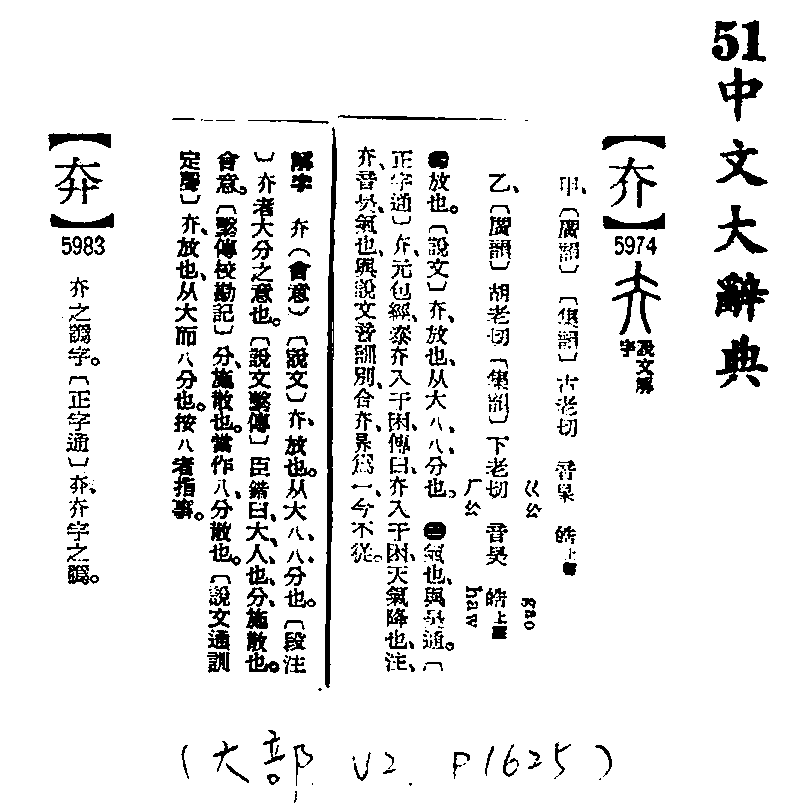 51中文大辭典
【夰】
5974
說文解字
甲、〔廣韻〕〔集韻〕古老切 音杲 皓上聲
ㄍㄠ gao
乙、〔廣韻〕胡老切〔集韻〕下老切 音昊 皓上聲
ㄏㄠ haw
㊀放也。〔說文〕夰、放也、从大八、八分也。㊁氣也、與昊通。〔
正字通〕夰、元包經、泰夰入于困、傳曰、夰入于困、天氣降也、注、
夰、音昊、氣也、與說文音訓別、合夰昦爲一、今不從。
解字 夰(會意)〔說文〕夰、放也。从大、八、八分也。〔段注
〕夰者大分之意也。〔說文繫傳〕臣鍇曰、大、人也、分、施散也。
會意。〔繫傳校勘記〕分、施散也。當作八、分散也。〔說文通訓
定聲〕夰、放也、从大而八分也。按八者指事。
5983
夰之譌字。〔正字通〕
夰字之譌。
(大部 V2 P1625)